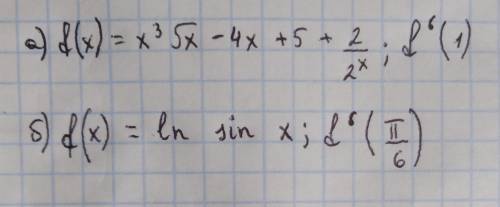 а) f(x) = x³ √x - 4x + 5 + 2/2ˣ ; f⁶(1)
б) f(x) = ln sin x ; f⁶(π/6)